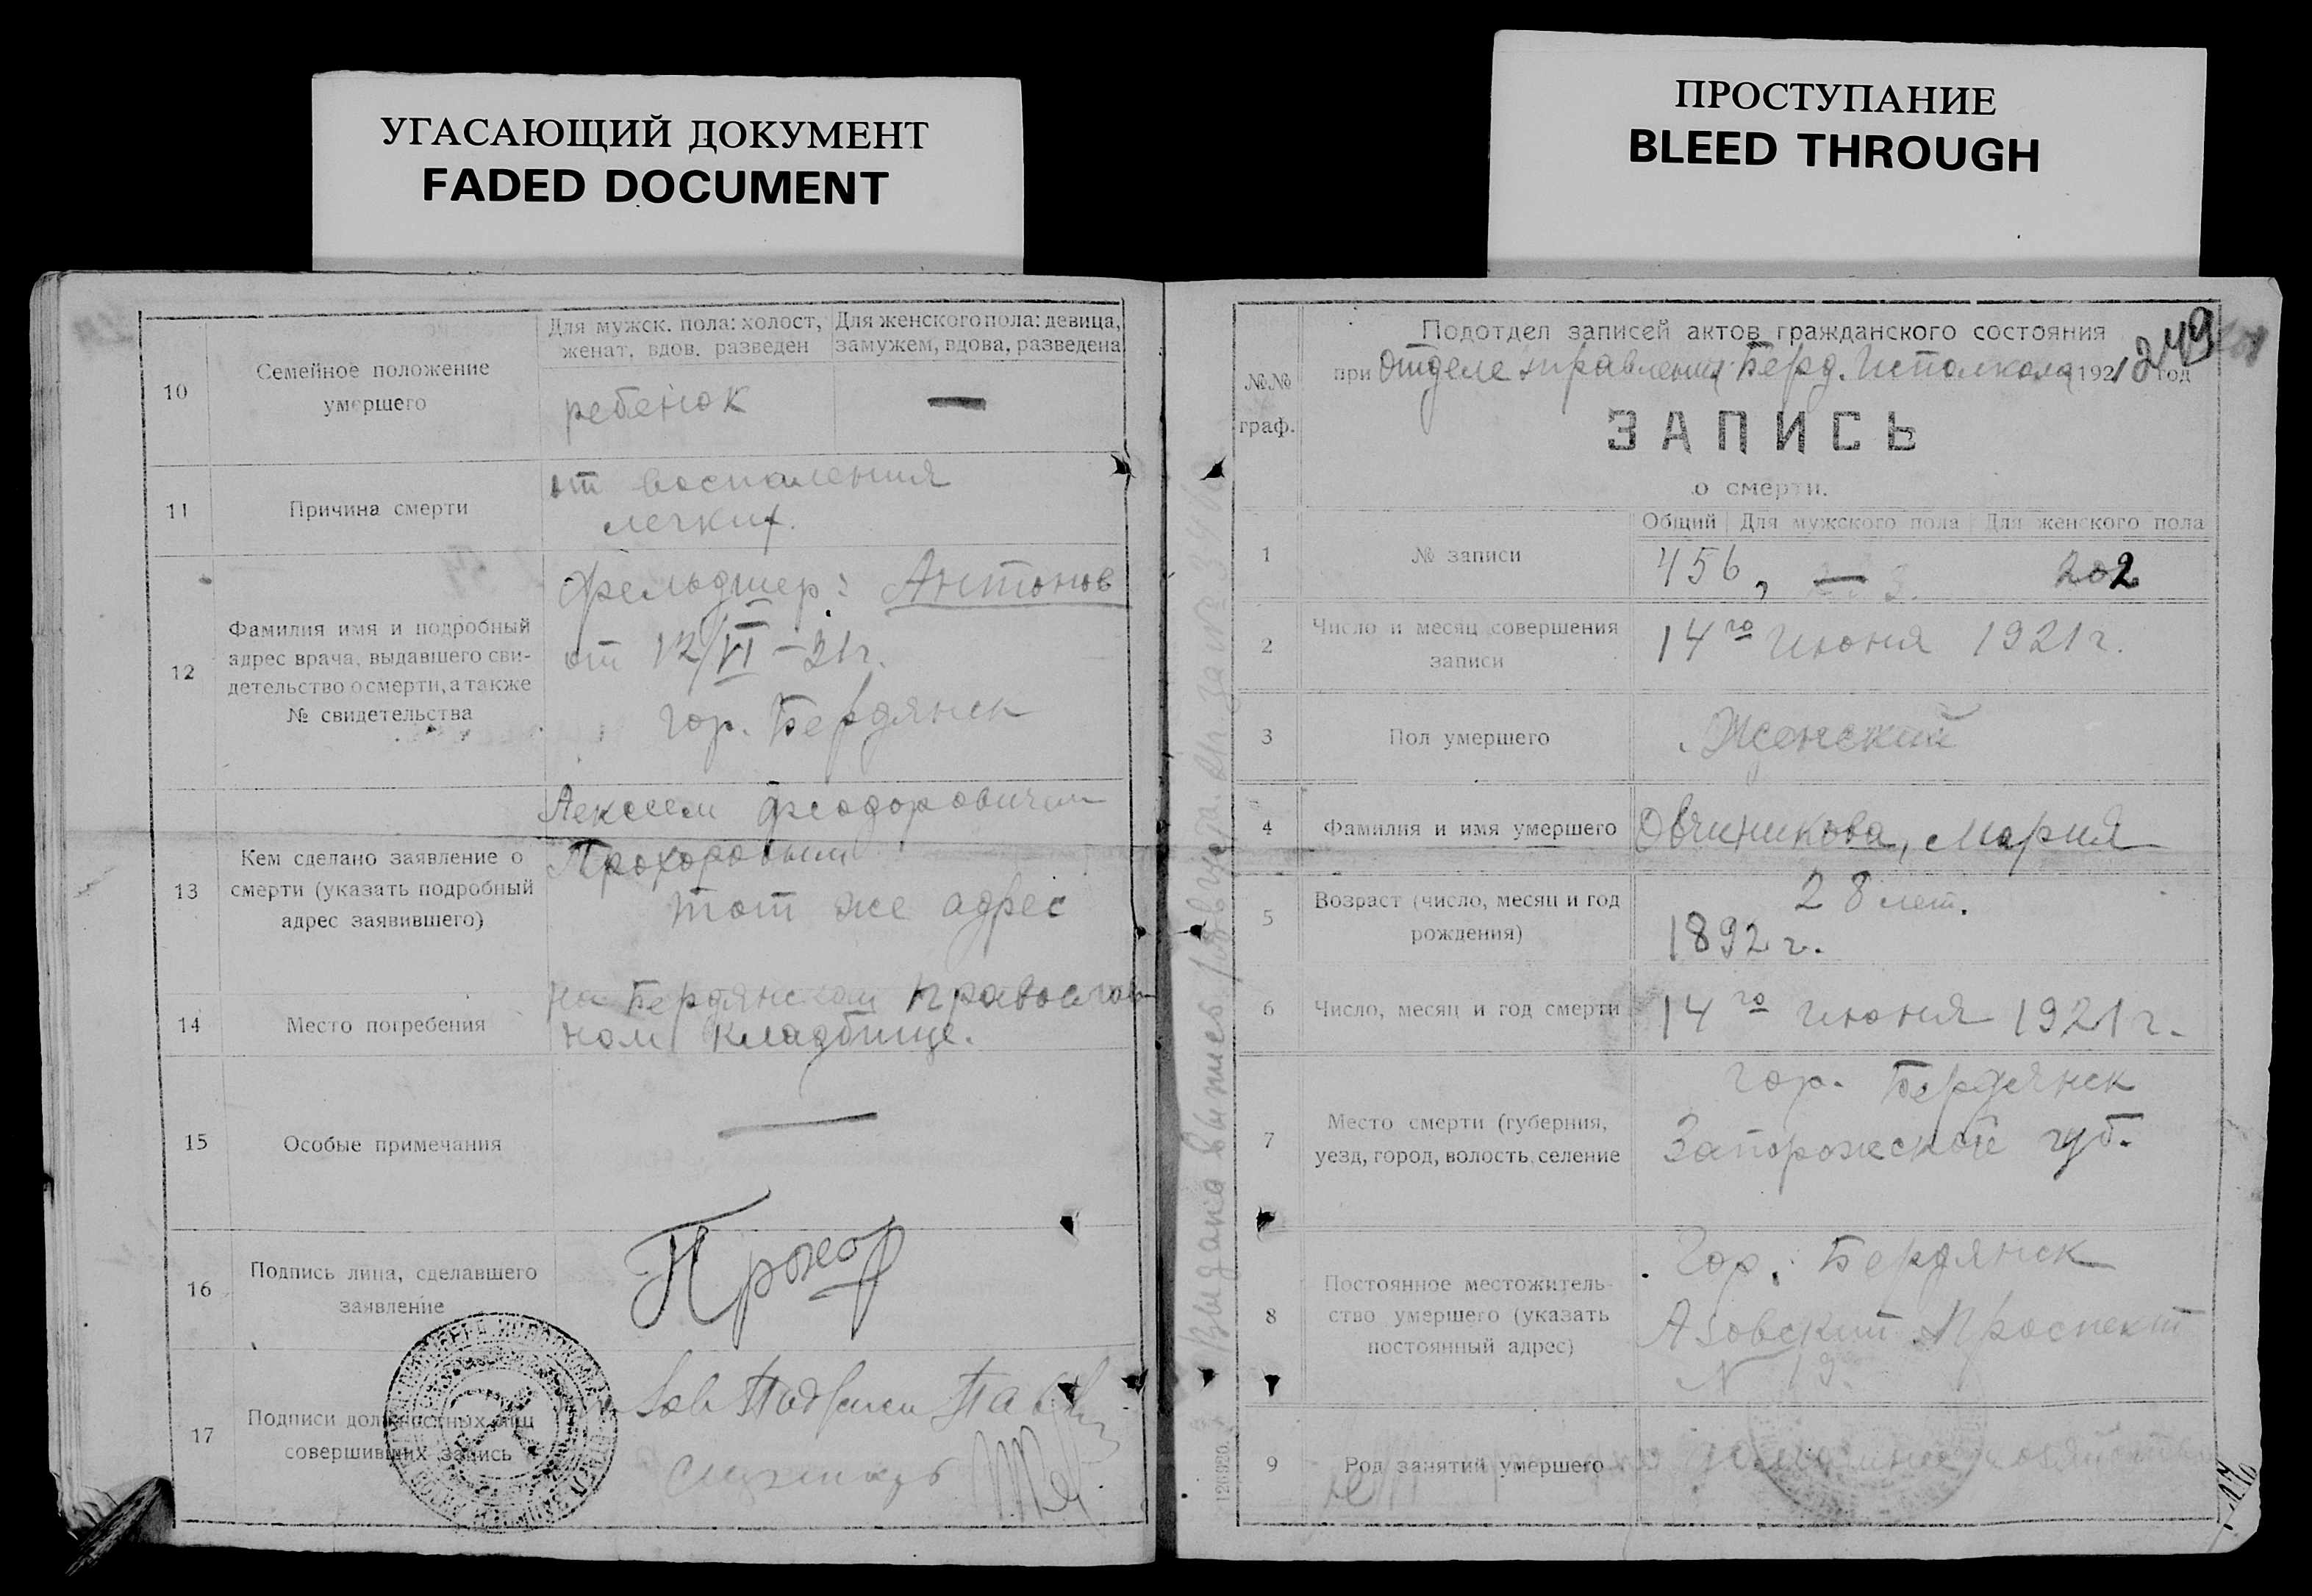 УГАСАЮЩИЙ ДОКУМЕНТ
FADED DOCUMENT
ПРОСТУПАНИЕ
BLEED THROUGH
10
Семейное положение
умершего
Для мужск. пола: холост,
женат, вдов, разведен
Для женского пола: девица,
замужем, вдова, разведена
ребенок
—
11
Причина смерти
от воспаления
легких.
12
Фамилия имя и подробный
адрес врача, выдавшего сви-
детельство о смерти, а также
№ свидетельства
Фельдшер: Антонов
от 12/VI – 21 г.
гор. Бердянск
13
Кем сделано заявление о
смерти (указать подробный
адрес заявившего)
Алексеем Феодоровичем
Прохоровым
тот же адрес
14
Место погребения
на Бердянском православ
ном кладбище.
15
Особые примечания
—
16
Подпись лица, сделавшего
заявление
Прохор
17
Подписи должностных лиц
совершивших запись
Зав
249
№№
граф.
Подотдел записей актов гражданского состояния
при Отделе управления Берд. Исполкома 1921 год
ЗАПИСЬ
о смерти.
1
№ записи
Общий
Для мужского пола
Для женского пола
456,
—
202
2
Число и месяц совершения
записи
14го Июня 1921 г.
3
Пол умершего
Женский
4
Фамилия и имя умершего
Овчиникова, Мария
5
Возраст (число, месяц и год
рождения)
28 лет.
1892 г.
6
Число, месяц и год смерти
14го июня 1921 г.
7
Место смерти (губерния,
уезд, город, волость, селение
гор. Бердянск
Запорожской губ.
8
Постоянное местожитель-
ство умершего (указать
постоянный адрес)
Гор. Бердянск
Азовский Проспект
N 19
9
Род занятий умершего
Выдана выпись